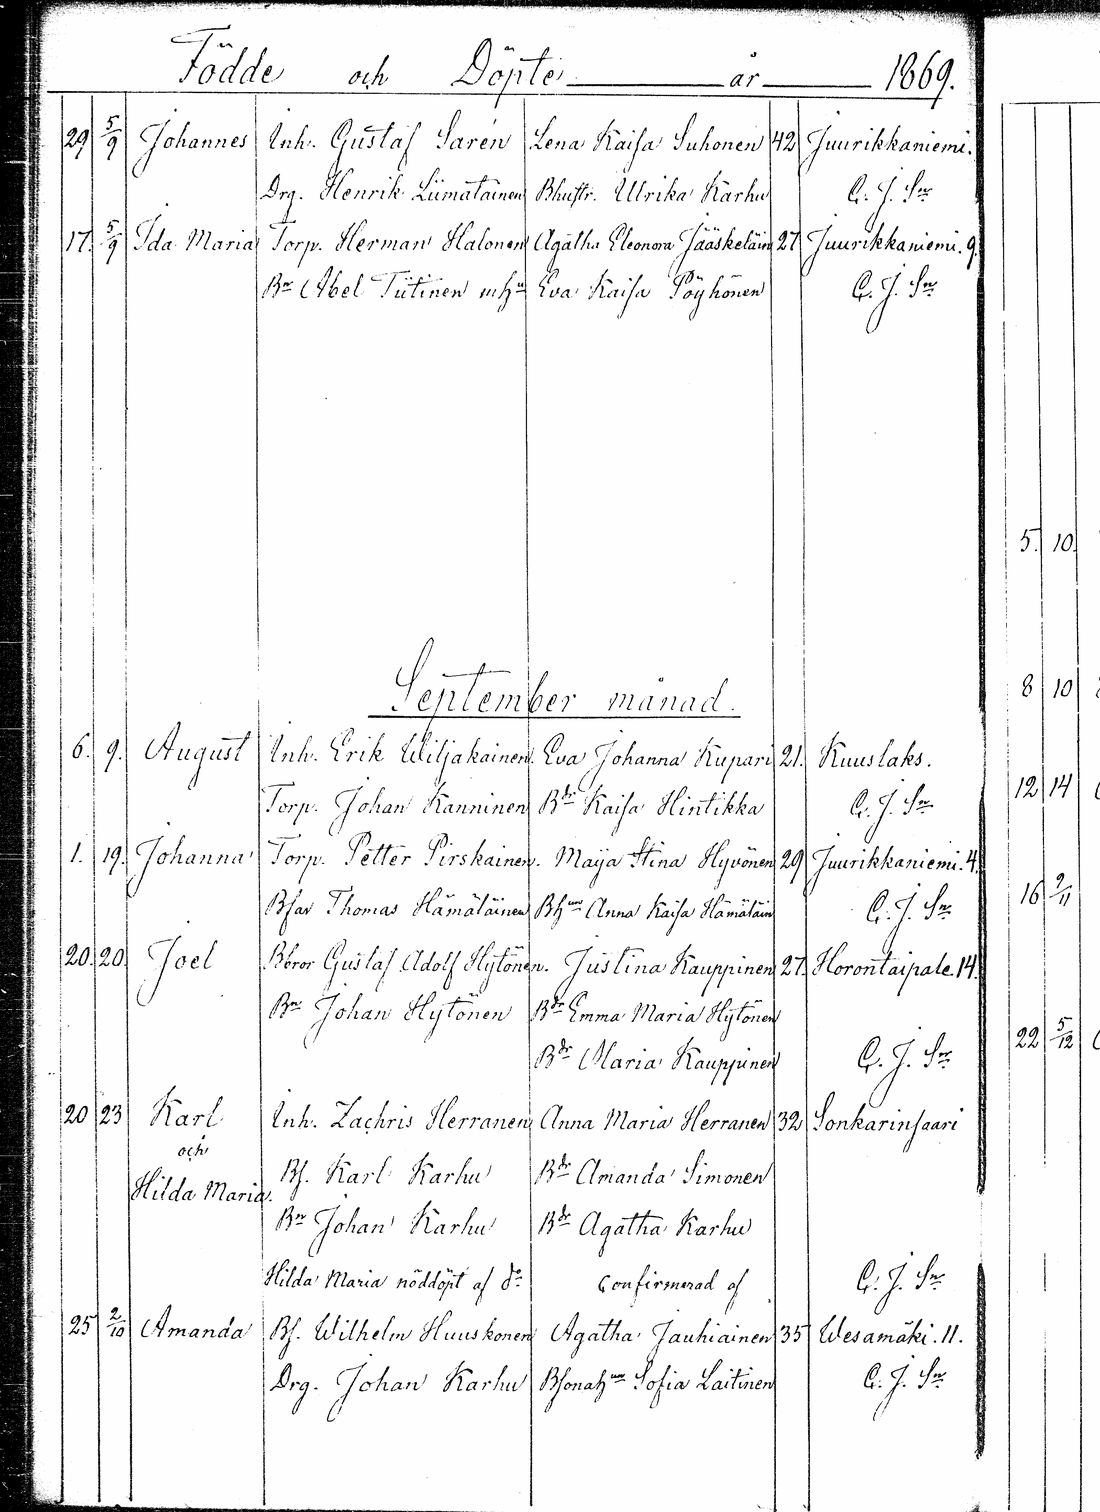 Födde och Döpte år 1869.
29 5/9 Johannes Inh. Gustaf Sarén Lena Kaisa Suhonen 42 Juurikkaniemi.
Drg. Henrik Liimatainen Bhustr. Ulrika Karhu C. J. Snr
17. 5/9 Ida Maria Torp. Herman Halonen Agatha Eleonora Jääskeläin 27 Juurikkaniemi. 9.
Bn Abel Tiitinen m hu Eva Kaisa Pöyhönen C. J. Snr
September månad.
6. 9. August Inh. Erik Wiljakainen. Eva Johanna Kupari 21. Kuuslaks.
Torp. Johan Kanninen Bdr Kaisa Hintikka C. J. Snr
1. 19. Johanna Torp. Petter Pirskainen. Maija Stina Hyvönen 29 Juurikkaniemi. 4.
Bfar Thomas Hämäläinen Bhun Anna Kaisa Hämäläin C. J. Snr
20. 20. Joel Bbror Gustaf Adolf Hytönen. Justina Kauppinen 27. Horontaipale. 14.
Bn Johan Hytönen Bdr Emma Maria Hytönen
Bdr Maria Kauppinen C. J. Snr
20 23 Karl Inh. Zachris Herranen Anna Maria Herranen 32 Sonkarinsaari
och
Hilda Maria. Bs. Karl Karhu Bdr Amanda Simonen
Bn Johan Karhu Bdr Agatha Karhu
Hilda Maria nöddöpt af do confirmerad af C. J. Snr
25 2/10 Amanda Bs. Wilhelm Huuskonen Agatha Jauhiainen 35 Wesamäki. 11.
Drg. Johan Karhu Bsonahun Sofia Laitinen C. J. Snr
5. 10.
8 10
12 14
16 2/11
22 5/12